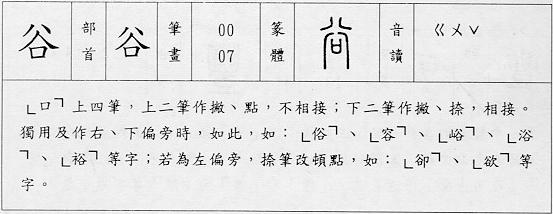 谷 部首 谷 筆畫 00 07 篆體 谷 音讀 ㄍㄨˇ
「口」上四筆，上二筆作撇、點，不相接；下二筆作撇、捺，相接。
獨用及作右、下偏旁時，如此，如：「俗」、「容」、「峪」、「浴
」、「裕」等字；若為左偏旁，捺筆改頓點，如：「卻」、「欲」等
字。